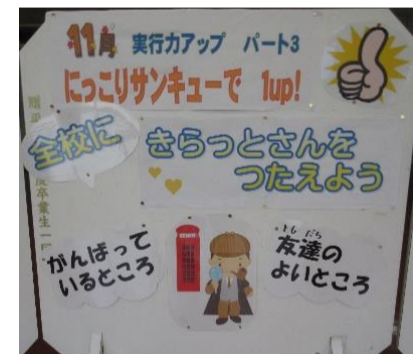 11月 実行力アップ パート3
にっこりサンキューで 1up!
全校に
きらっとさんを
つたえよう
がんばって
いるところ
ともだち
友達の
よいところ
卒業生一同